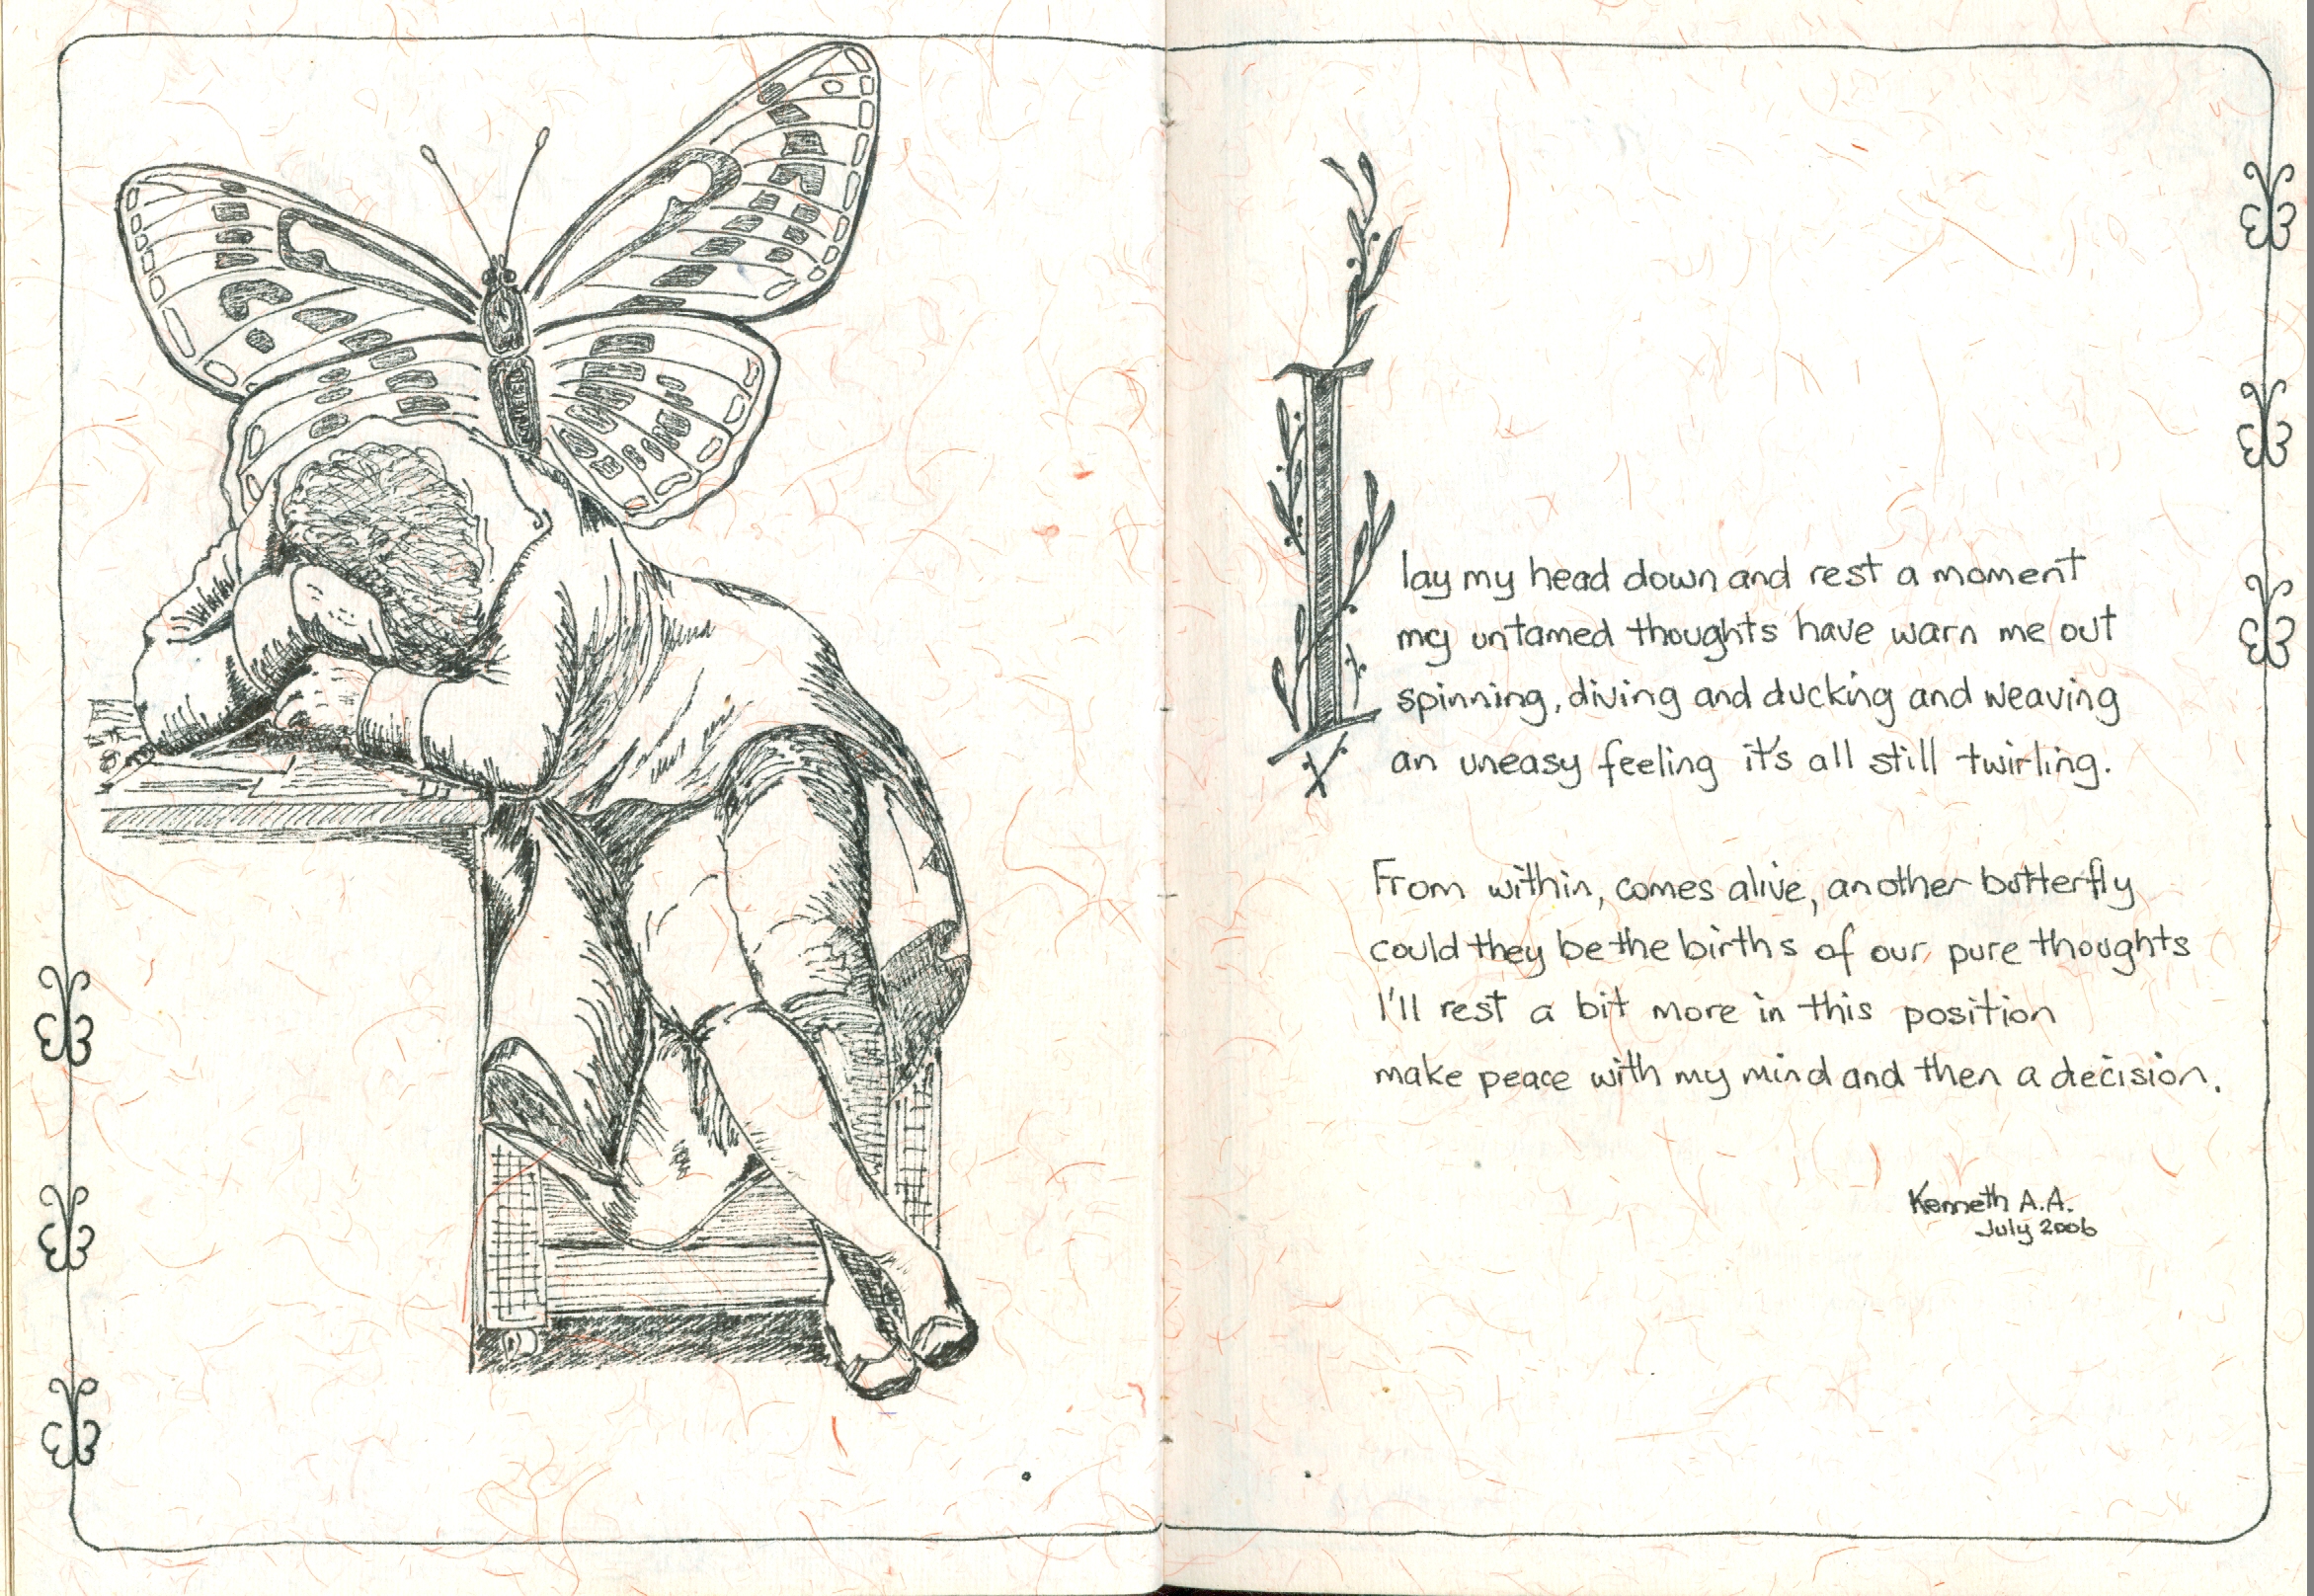 I lay my head down and rest a moment
my untamed thoughts have warn me out
spinning, diving and ducking and weaving
an uneasy feeling it's all still twirling.
From within, comes alive, another butterfly
could they be the births of our pure thoughts
I'll rest a bit more in this position
make peace with my mind and then a decision.
Kenneth A.A.
July 2006